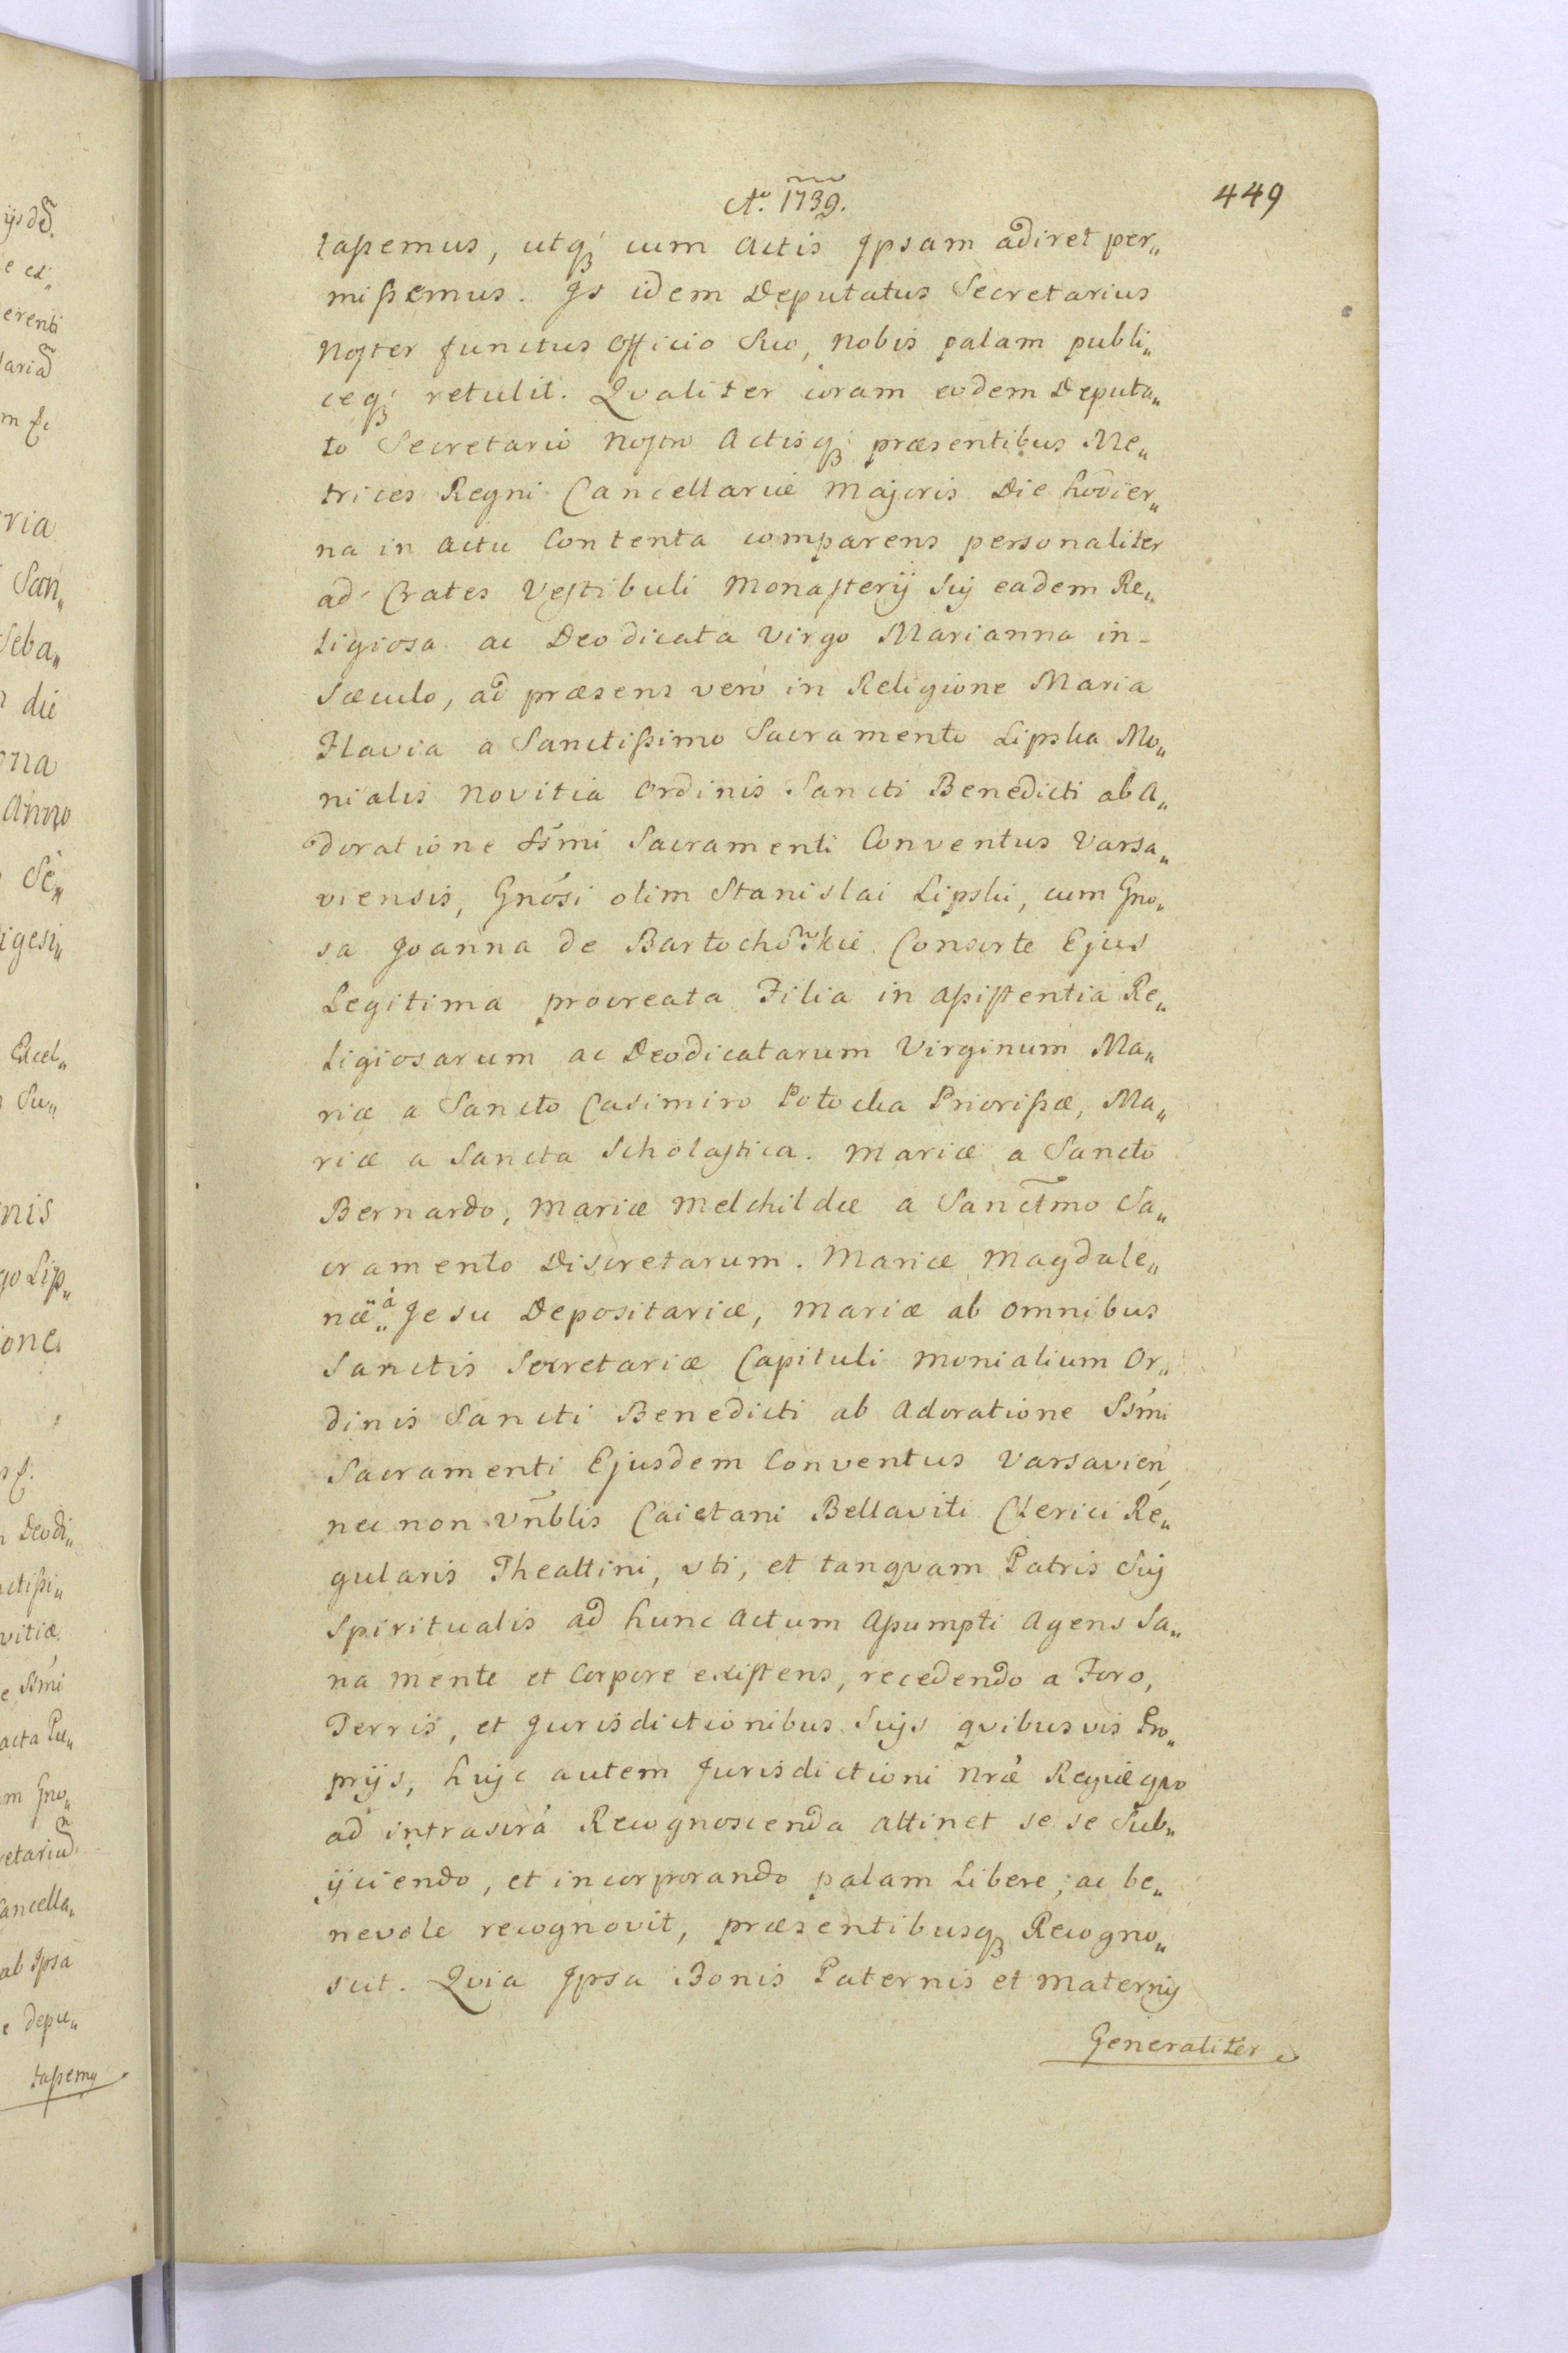 Aº. 1739.
449
tassemus, utq; cum Actis Ipsam adiret per„
missemus. Is idem Deputatus Secretarius
Noster functus Officio Suo, Nobis palam publi„
ceq; retulit. Qvaliter coram eodem Deputa„
to Secretario Nostro Actisq; præsentibus Me„
trices Regni Cancellariæ Majoris Die hodier„
na in actu Contenta comparens personaliter
ad Crates Vestibuli Monasterij Sui eadem Re„
Ligiosa ac Deo dicata Virgo Marianna in-
Sæculo, ad præsens verò in Religione Maria
Flavia a Sanctissimo Sacramento Lipska Mo„
nialis Novitia Ordinis Sancti Benedicti ab A„
doratione SSmi Sacramenti Conventus Varsa„
viensis, Gnosi olim Stanislai Lipski, cum Gno„
sa Joanna de Bartochowskie Consorte Ejus
Legitima procreata Filia in Assistentia Re„
Ligiosarum ac Deodicatarum Virginum Ma„
riæ a Sancto Casimiro Potocka Priorissæ, Ma„
riæ a Sancta Scholastica. Mariæ a Sancto
Bernardo, Mariæ Melchildæ a Sanctmo Sa„
cramento Discretarum. Mariæ Magdale„
næ à Jesu Depositariæ, Mariæ ab omnibus
Sanctis Secretariæ Capituli Monialium Or„
dinis Sancti Benedicti ab Adoratione SSmi
Sacramenti Ejusdem Conventus Varsavien,
nec non Vnblis Caietani Bellaviti Clerici Re„
gularis Theattini, uti, et tanqvam Patris Sui
Spiritualis ad hunc Actum Assumpti Agens Sa„
na mente et Corpore existens, recedendo a Foro,
Terris, et Jurisdictionibus Suijs qvibusvis Pro„
prijs, huic autem Jurisdictioni Nræ Regiæ qvo
ad intrascrá Recognoscenda attinet se se Sub„
ijciendo, et incorporando palam Libere, ac be„
nevole recognovit, præsentibusq; Recogno„
scit. Qvia Ipsa Bonis Paternis et Maternis
Generaliter